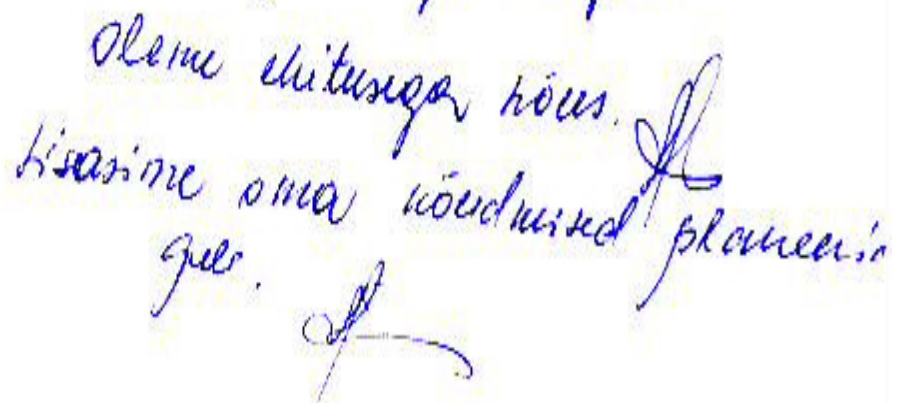 Oleme ehitusega nõus.
Lisasime oma nõudmised planeerin
gule.